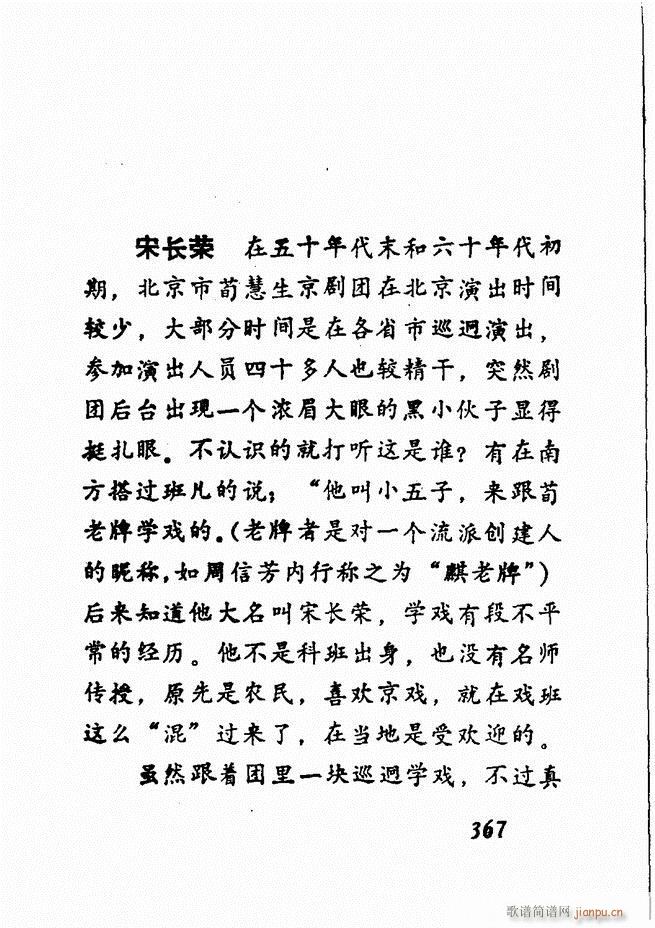 宋长荣　在五十年代末和六十年代初
期，北京市荀慧生京剧团在北京演出时间
较少，大部分时间是在各省市巡迴演出，
参加演出人员四十多人也较精干，突然剧
团后台出现一个浓眉大眼的黑小伙子显得
挺扎眼。不认识的就打听这是谁？有在南
方搭过班儿的说；“他叫小五子，来跟荀
老牌学戏的。（老牌者是对一个流派创建人
的昵称，如周信芳内行称之为“麒老牌”）
后来知道他大名叫宋长荣，学戏有段不平
常的经历。他不是科班出身，也没有名师
传授，原先是农民，喜欢京戏，就在戏班
这么“混”过来了，在当地是受欢迎的。
虽然跟着团里一块巡迴学戏，不过真
367
歌谱简谱网 jianpu.cn